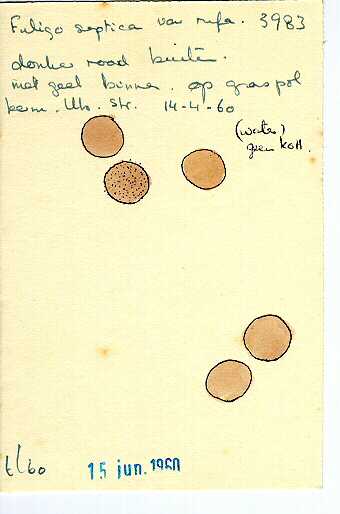 Fuligo septica var rufa. 3983
donker rood buiten.
met geel binnen. op graspol
kem. Utr. Str. 14-4-60
(water)
geen KOH.
t/60
15 jun. 1960